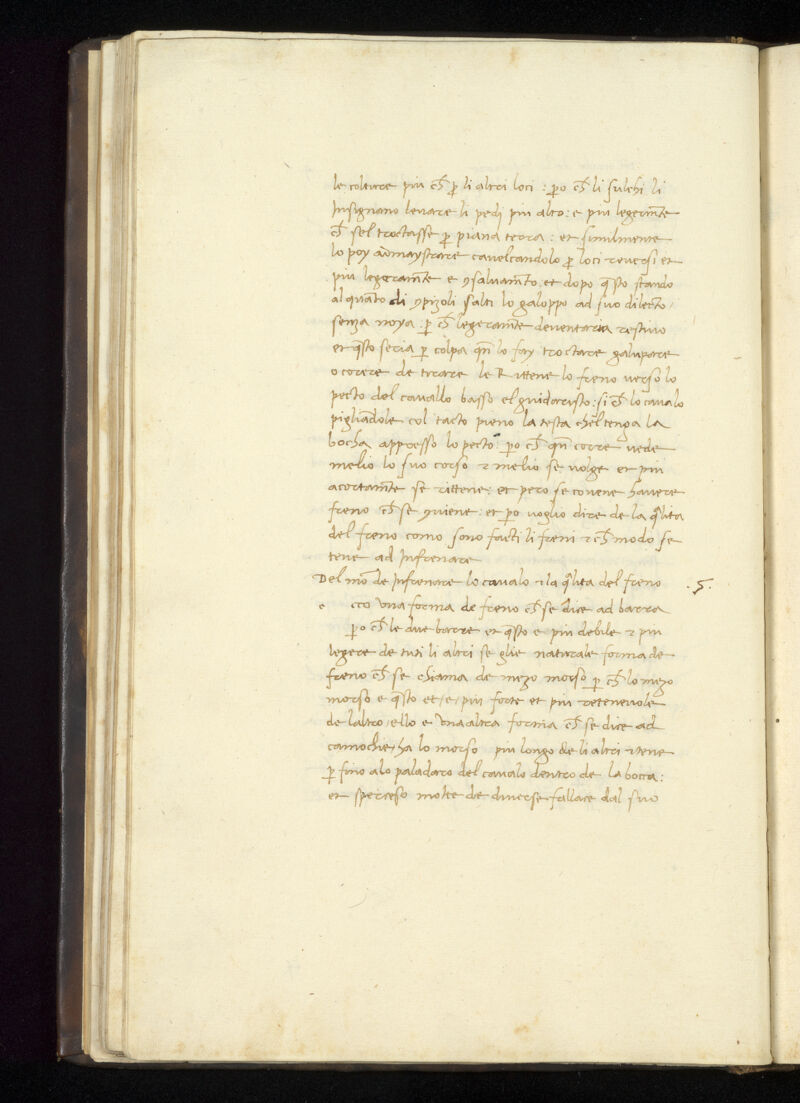 le colture piu ch̄ ꝑ li altri loci : ꝑo ch̄ li sulchi li
Insignano leuare li pedi piu alto : e piu legerm̄te
ch̄ sel troctasse ꝑ piana terra : et similmente
lo poy admaystrare caualcandolo ꝑ loci reuersi et
piu legeram̄te e ꝯsaluam̄to et dopo q̄sto stando
alquāto di ꝯpizoli salti lo galoppo ad suo dilecto /
senza noya : ꝑ ch̄ legeram̄te deuentaria restiuo
et q̄sto seria ꝑ colpa qn̄ lo fay troctare galupare
o corere de tirare le Rittene lo freno uerso lo
pecto del cauallo basso el guidaristo : si ch̄ lo caualo
pigliādole col tacto pieno la testa chel tenga la
bocha appresso lo pecto : ꝑo ch̄ qn̄ corre uede
melio lo suo corso ⁊ melio se uolge et piu
acortam̄te se rittene : et pero se conene hauere
freno ch̄ se ꝯuiene : et ꝑo uoglio dire de la q̄lita
del freno como sono facti li freni ⁊ ch̄ modo se
tene ad Infrenare
Del mō de Infrenare lo caualo ⁊ la q̄lita del freno .5.
e cco una forma de freno ch̄ se dice ad barra
ꝑo ch̄ le due barre et q̄sto e piu debile ⁊ piu
legere de tuti li altri se glie naturale forma de
freno ch̄ se chiama de mezo morso ꝑ ch̄ lo mezo
morso e q̄sto et / e / piu forte et piu retenevole
de laltro / ello e una altra forma ch̄ se dice ad
camochie / ha lo morso piu longo de li altri ⁊ tene
ꝑ fino alo paladaro del caualo dentro de la bocca :
et sperceso molte de diuerse fallace dal suo